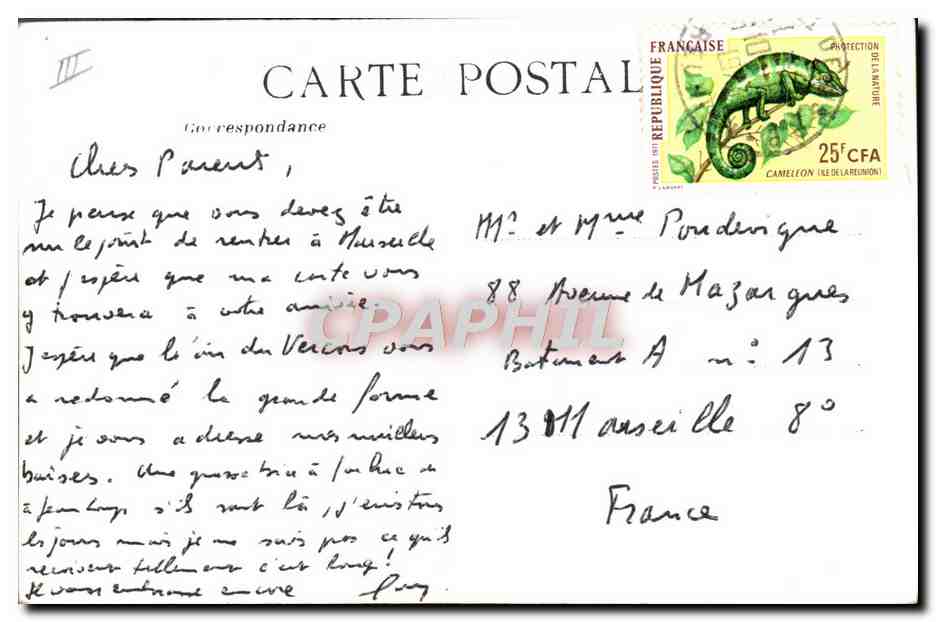 III
CARTE POSTAL
Correspondance
Chers Parents,
Je pense que vous devez être
sur le point de rentrer à Marseille
et j'espère que ma carte vous
y trouvera à votre arrivée.
J'espère que l'air du Vercors vous
a redonné la grande forme
et je vous adresse mes meilleurs
baisers. Une grosse bise à
à s'ils sont là, j'écris tous
les jours mais je ne sais pas ce qu'ils
reçoivent tellement c'est long!
Je vous embrasse encore Guy
RÉPUBLIQUE FRANÇAISE
PROTECTION DE LA NATURE
POSTES 1971
25F CFA
CAMÉLÉON (ILE DE LA RÉUNION)
Mr et Mme Poudevigne
88 Avenue de Mazargues
Batiment A n° 13
13 Marseille 8°
France
CPAPHIL